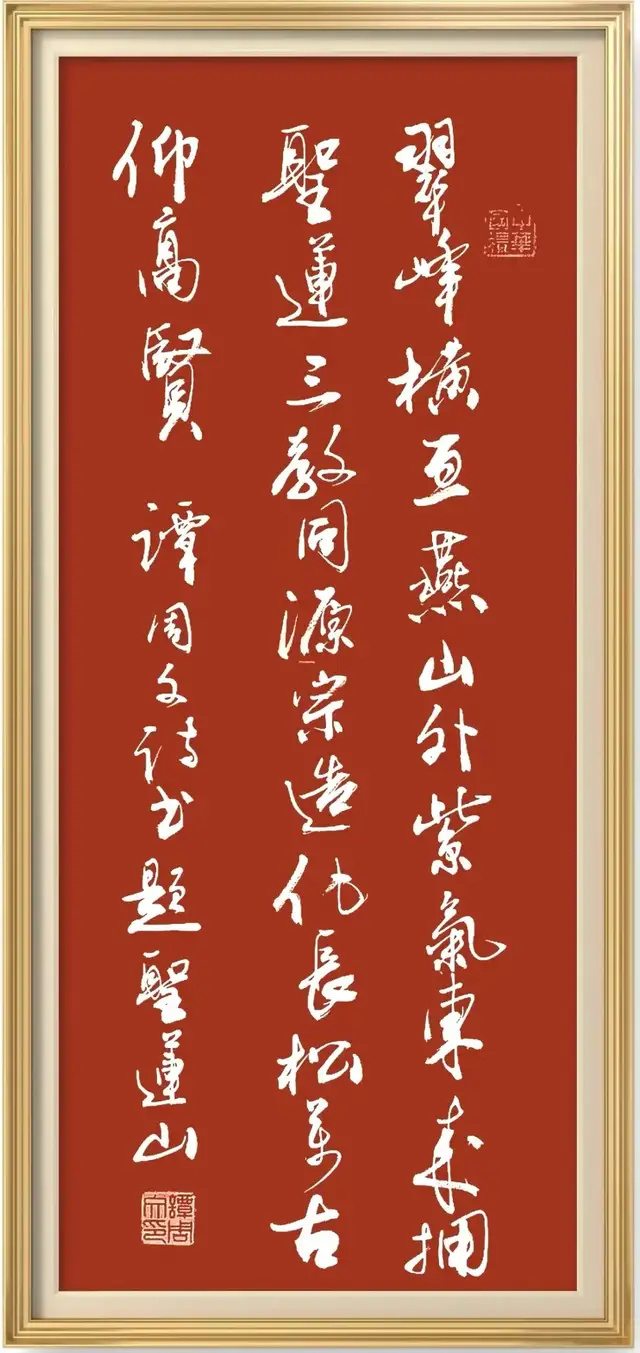 翠峰橫亙燕山外紫氣東來擁
聖蓮三教同源宗造化長松萬古
仰高賢 譚周文詩書題聖蓮山
中華國禮
譚周文印